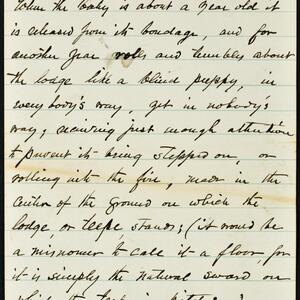 When the baby is about a year old it
is released from its bondage, and for
another year rolls and tumbles about
the lodge like a blind puppy, in
everybody's way, yet in nobody's
way; securing just enough attention
to prevent its being stepped on, or
rolling into the fire, made in the
center of the ground on which the
lodge, or teepe stands; (it would be
a misnomer to call it a floor, for
it is simply the natural sward on
which the